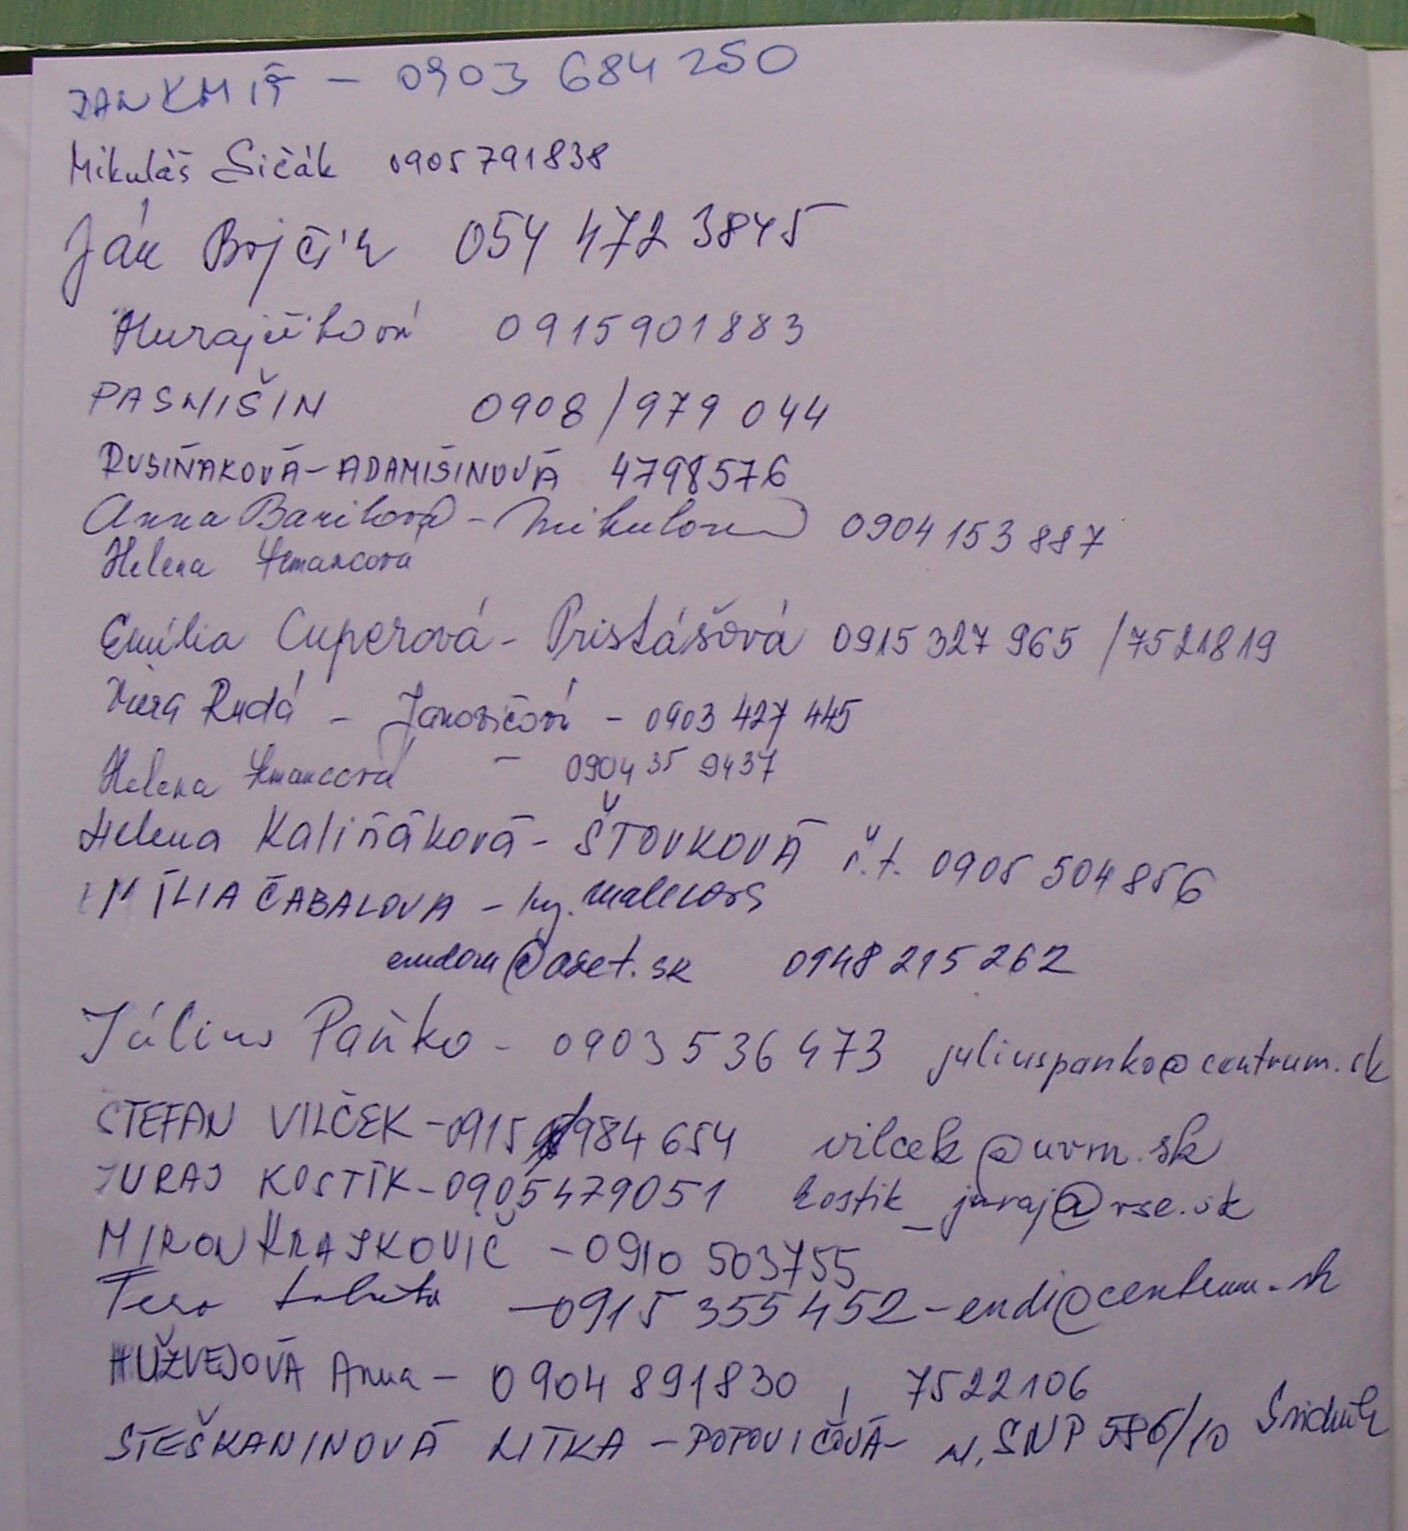 JAN KMIŤ - 0903 684 250
Mikuláš Sičák 0905791838
Ján Bojčík 054 472 3845
Hurajčíková 0915901883
PASNIŠIN 0908/979 044
RUSIŇÁKOVÁ-ADAMIŠINOVÁ 4798576
Anna Barilová - Mikulová 0904 153 887
Helena
Emília Cuperová - Pristášová 0915 327 965 /7521819
Viera Rudá - Janovičová - 0903 427 445
Helena - 0904 35 9437
Helena Kaliňáková - ŠTOVKOVÁ č.t. 0905 504 856
EMÍLIA ČABALOVA -
@aset.sk 0948 215 262
Július Paňko - 0903 536 473 juliuspanko@centrum.sk
STEFAN VILČEK - 0915 984 654 vilcek@uvm.sk
JURAJ KOSTÍK - 0905479051 kostik_juraj@rse.sk
MIRON KRAJKOVIČ - 0910 503755
- 0915 355 452 - endi@centrum.sk
HUŽVEJOVÁ Anna - 0904 891830 , 7522106
STEŠKANINOVÁ NITKA - POPOVIČOVÁ - N. SNP 586/10 Svidník